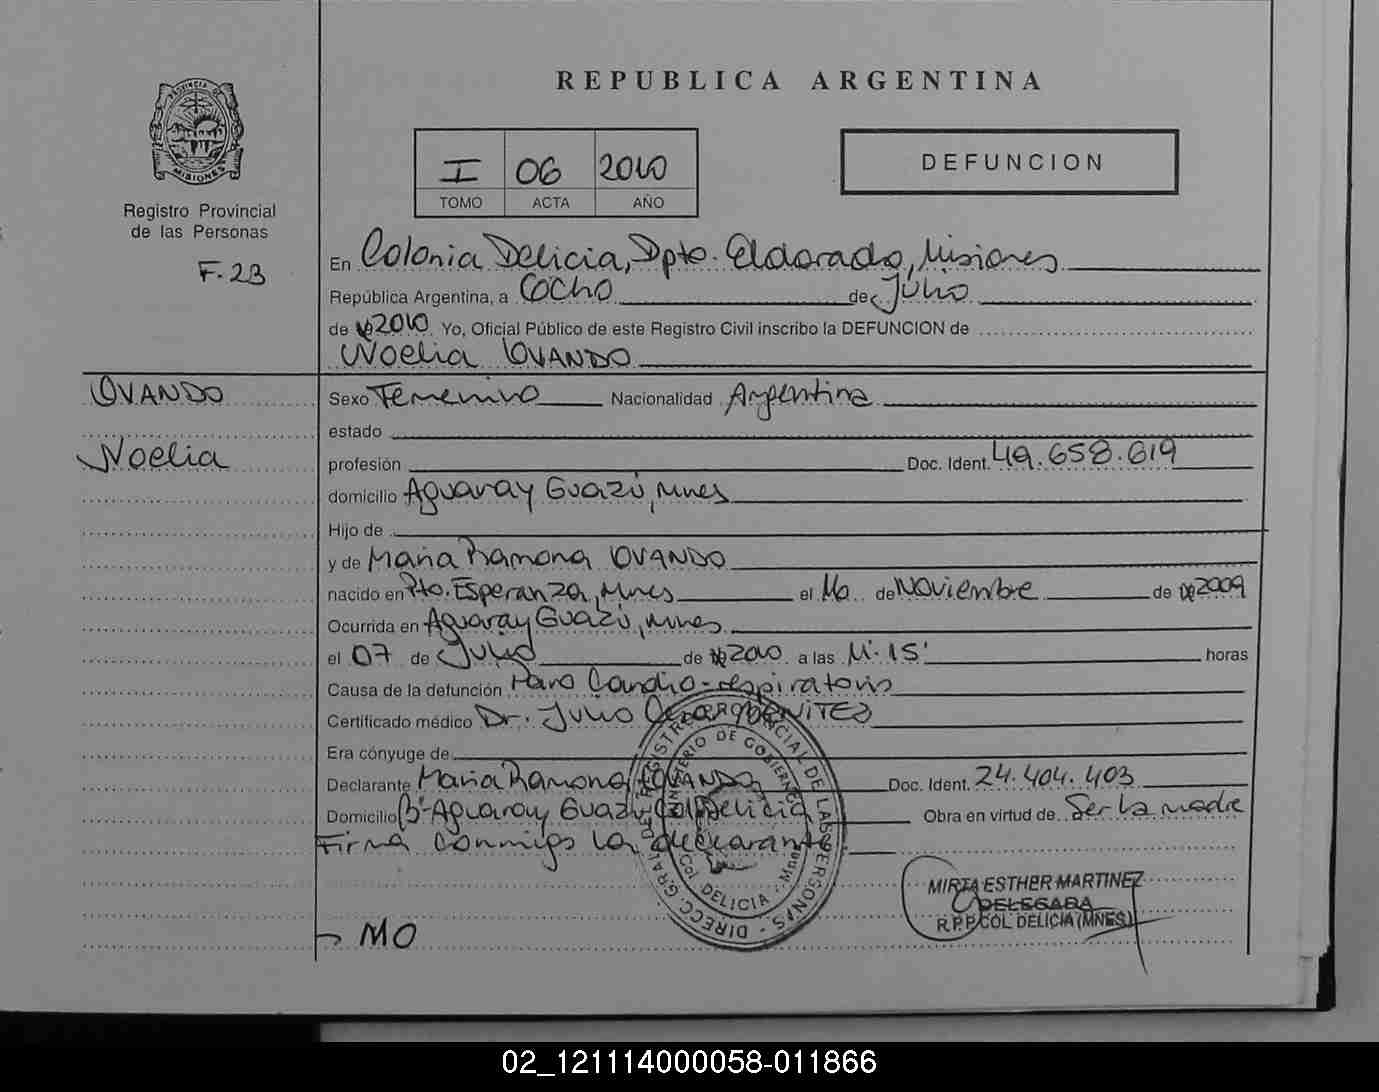 REPUBLICA ARGENTINA
PROVINCIA DE MISIONES
Registro Provincial
de las Personas
F. 23
I 06 2010
TOMO ACTA AÑO
DEFUNCION
En Colonia Delicia, Dpto. Eldorado, Misiones
República Argentina, a Ocho de Julio
de 2010 Yo, Oficial Público de este Registro Civil inscribo la DEFUNCION de
Noelia OVANDO
OVANDO
Noelia
Sexo Femenino Nacionalidad Argentina
estado
profesión Doc. Ident. 49.658.619
domicilio Aguaray Guazú, Mnes
Hijo de
y de María Ramona OVANDO
nacido en Pto. Esperanza, Mnes el de Noviembre de 2009
Ocurrida en Aguaray Guazú, Mnes.
el 07 de Julio de 2010 a las 11.15' horas
Causa de la defunción Paro Cardio-respiratorio
Certificado médico Dr. Julio Cesar BENITEZ
Era cónyuge de
Declarante María Ramona OVANDO Doc. Ident. 24.404.403
Domicilio Bº Aguaray Guazú Col. Delicia Obra en virtud de Ser la madre
Firma conmigo la declarante
DIRECC. GRAL. DEL REGISTRO PROVINCIAL DE LAS PERSONAS
MINISTERIO DE GOBIERNO
Col. DELICIA - Mnes
MIRTA ESTHER MARTINEZ
DELEGADA
R.P.P. COL DELICIA (MNES)
MO
02_121114000058-011866